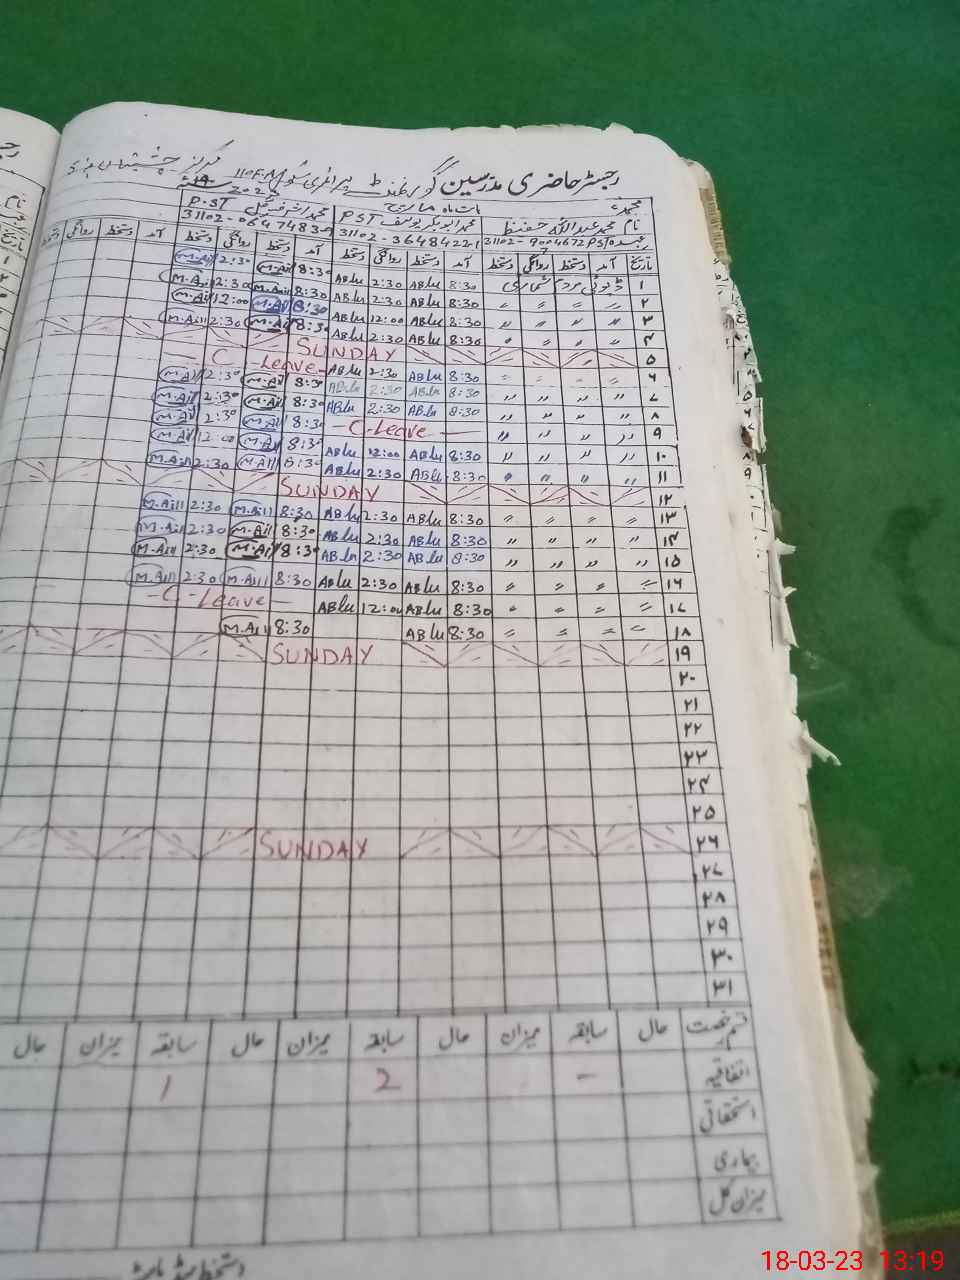 رجسٹر حاضری مدرسین گورنمنٹ پرائمری سکول 110F.M مرکز چشتیاں
بابت ماہ مارچ 2023
نام محمد عبداللہ حفیظ محمد ابوبکر یوسف PST P.ST
31102-9004672 PST 31102-3648422-1 31102-0647483-9
تاریخ آمد دستخط روانگی دستخط آمد دستخط روانگی دستخط آمد دستخط روانگی دستخط آمد دستخط روانگی دستخط
۱ ڈیوٹی مردم شماری 8:30 ABlu 2:30 ABlu 8:30 M.Ail 2:30 M.Ail
۲ " " " " 8:30 ABlu 2:30 ABlu 8:30 M.Ail 2:30 M.Ail
۳ " " " " 8:30 ABlu 12:00 ABlu 8:30 M.Ail 12:00 M.Ail
۴ " " " " 8:30 ABlu 2:30 ABlu 8:30 M.Ail 2:30 M.Ail
۵ SUNDAY
۶ " " " " 8:30 ABlu 2:30 ABlu C-Leave
۷ " " " " 8:30 ABlu 2:30 ABlu 8:30 M.Ail 2:30 M.Ail
۸ " " " " 8:30 ABlu 2:30 ABlu 8:30 M.Ail 2:30 M.Ail
۹ " " " " C-Leave 8:30 M.Ail 2:30 M.Ail
۱۰ " " " " 8:30 ABlu 12:00 ABlu 8:30 M.Ail 12:00 M.Ail
۱۱ " " " " 8:30 ABlu 2:30 ABlu 8:30 M.Ail 2:30 M.Ail
۱۲ SUNDAY
۱۳ " " " " 8:30 ABlu 2:30 ABlu 8:30 M.Ail 2:30 M.Ail
۱۴ " " " " 8:30 ABlu 2:30 ABlu 8:30 M.Ail 2:30 M.Ail
۱۵ " " " " 8:30 ABlu 2:30 ABlu 8:30 M.Ail 2:30 M.Ail
۱۶ " " " " 8:30 ABlu 2:30 ABlu 8:30 M.Ail 2:30 M.Ail
۱۷ " " " " 8:30 ABlu 12:00 ABlu -C-Leave-
۱۸ " " " " 8:30 ABlu 8:30 M.Ail
۱۹ SUNDAY
۲۰
۲۱
۲۲
۲۳
۲۴
۲۵
۲۶ SUNDAY
۲۷
۲۸
۲۹
۳۰
۳۱
قسم رخصت حال سابقہ میزان حال سابقہ میزان حال سابقہ میزان حال
اتفاقیہ - 2 1
استحقاقی
بیماری
میزان کل
18-03-23 13:19